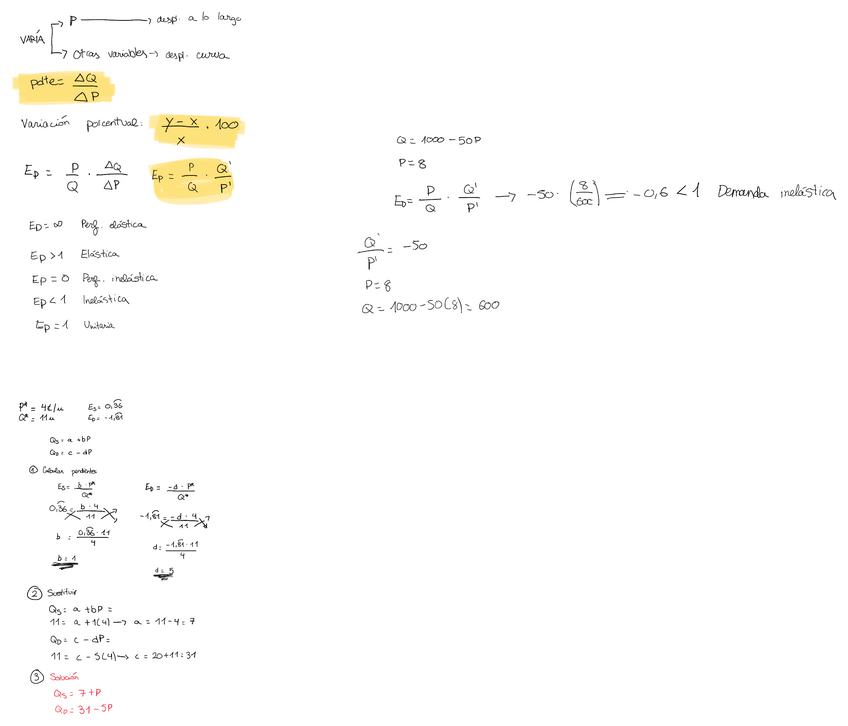 VARÍA
P → despl. a lo largo
Otras variables → despl. curva
pdte = ΔQ / ΔP
Variación porcentual: (y - x) / x · 100
E_D = P/Q · ΔQ/ΔP   E_D = P/Q · Q'/P'
E_D = ∞ Perf. elástica
E_D > 1 Elástica
E_D = 0 Perf. inelástica
E_D < 1 Inelástica
E_D = 1 Unitaria
Q = 1000 - 50P
P = 8
E_D = P/Q · Q'/P' → -50 · (8/600) = -0,6 < 1 Demanda inelástica
Q'/P' = -50
P = 8
Q = 1000 - 50(8) = 600
P* = 4€/u   E_S = 0,36
Q* = 11u   E_D = -1,81
Q_S = a + bP
Q_D = c - dP
① Calcular pendientes
E_S = b · P* / Q*   E_D = -d · P* / Q*
0,36 = b · 4 / 11   -1,81 = -d · 4 / 11
b = 0,36 · 11 / 4   d = -1,81 · 11 / 4
b = 1   d = 5
② Sustituir
Q_S = a + bP =
11 = a + 1(4) → a = 11 - 4 = 7
Q_D = c - dP =
11 = c - 5(4) → c = 20 + 11 = 31
③ Solución
Q_S = 7 + P
Q_D = 31 - 5P